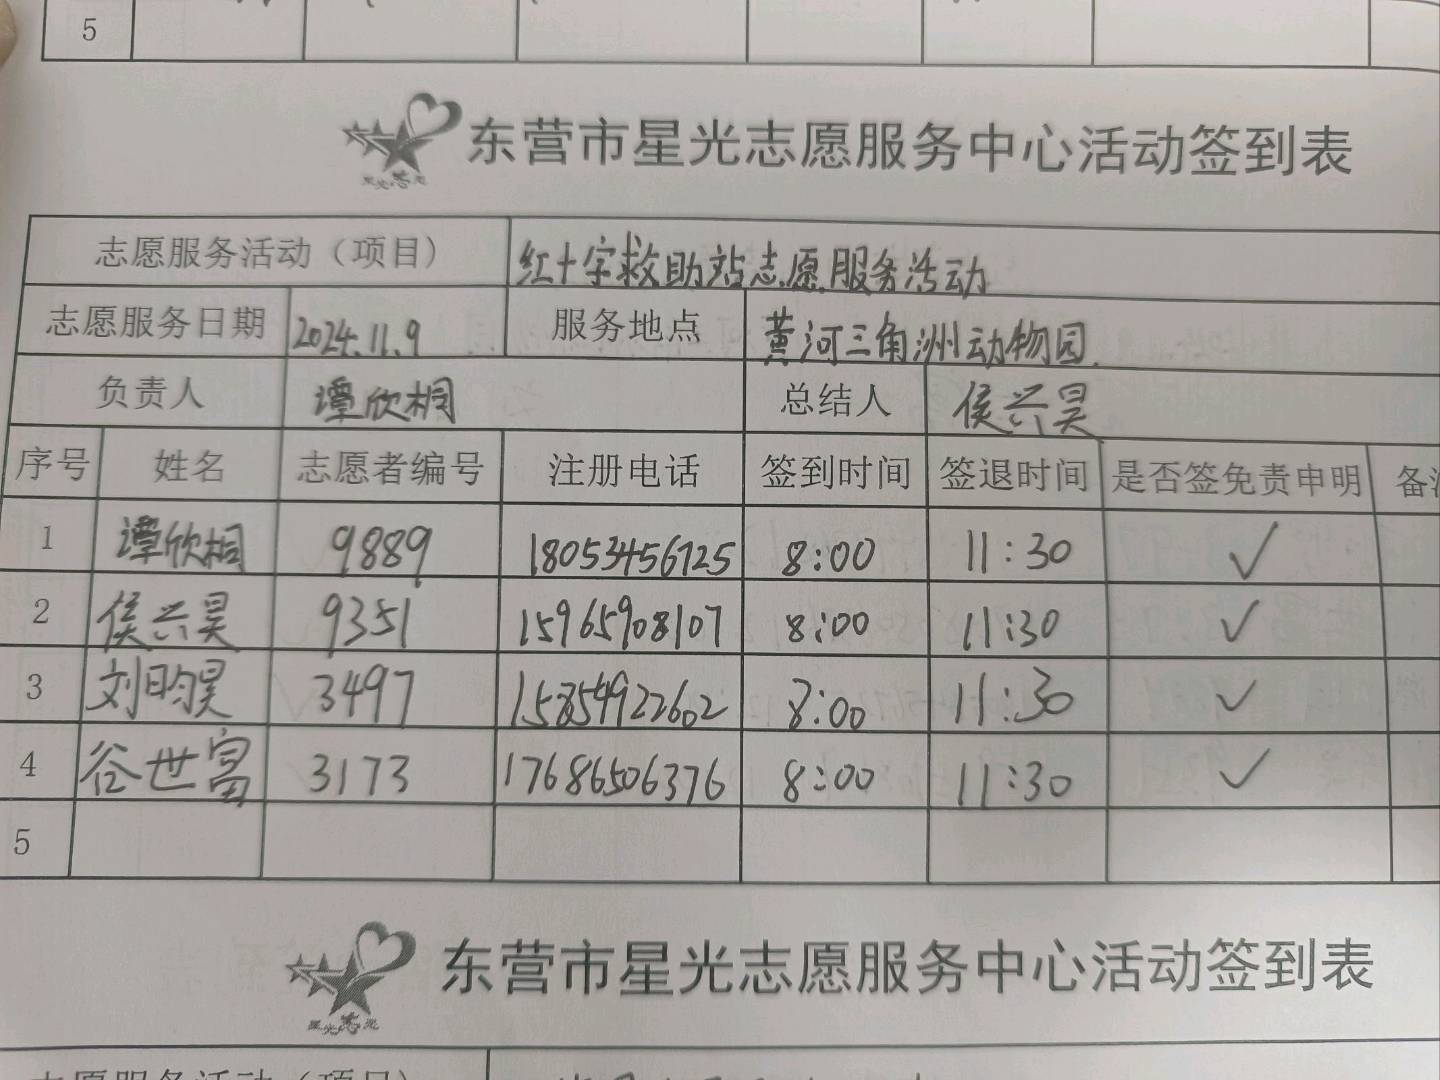 5
东营市星光志愿服务中心活动签到表
志愿服务活动（项目） 红十字救助站志愿服务活动
志愿服务日期 2024.11.9 服务地点 黄河三角洲动物园
负责人 谭欣桐 总结人 侯兴昊
序号 姓名 志愿者编号 注册电话 签到时间 签退时间 是否签免责申明 备
1 谭欣桐 9889 18053456725 8:00 11:30 ✓
2 侯兴昊 9351 15965908107 8:00 11:30 ✓
3 刘昀昊 3497 15854922602 8:00 11:30 ✓
4 谷世富 3173 17686506376 8:00 11:30 ✓
5
东营市星光志愿服务中心活动签到表
志愿服务活动（项目）